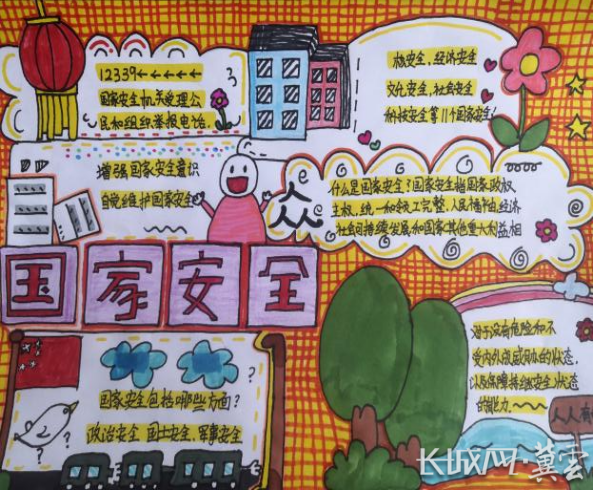 12339←←←←←
国家安全机关受理公
民和组织举报电话.
核安全,经济安全
文化安全,社会安全
科技安全等11个国家安全!
增强国家安全意识
自觉维护国家安全
人人
什么是国家安全?国家安全指国家政权、
主权、统一和领土完整、人民福祉、经济
社会可持续发展和国家其他重大利益相
国家安全
对于没有危险和不
受内外威胁的状态,
以及保障持续安全状态
的能力.
国家安全包括哪些方面?
政治安全、国土安全、军事安全
人人有
长城网·冀云